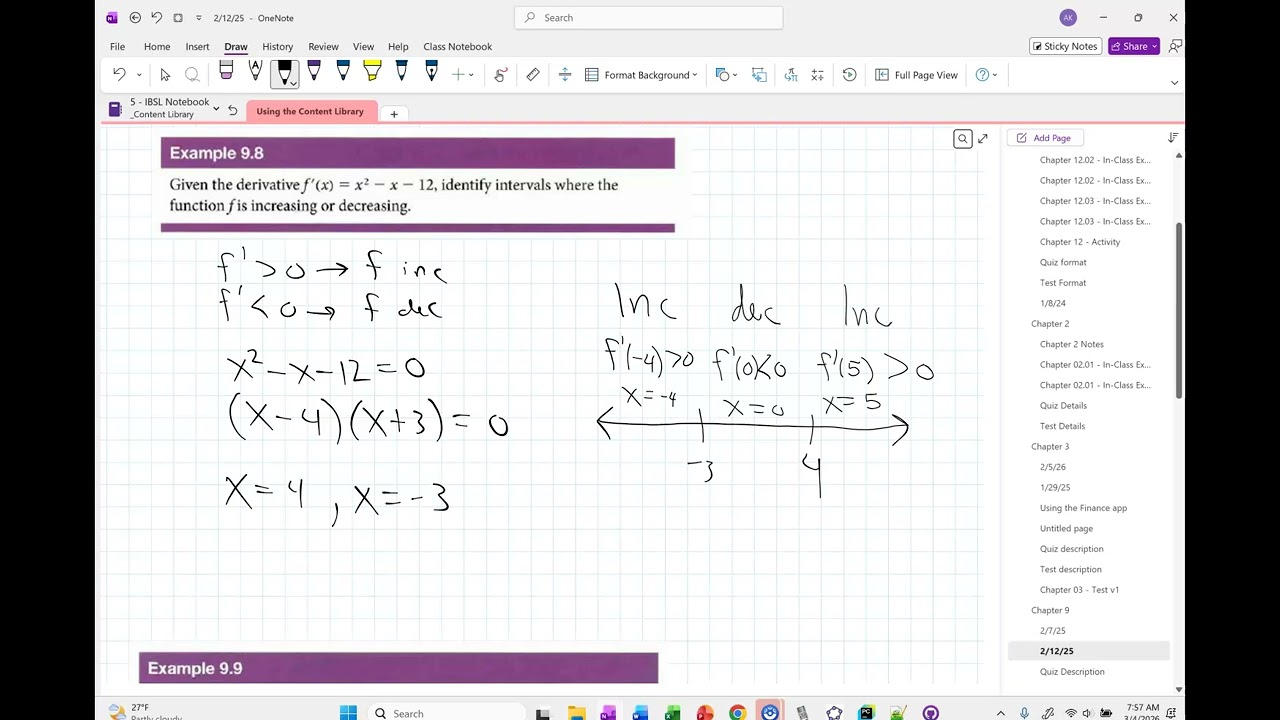 2/12/25 - OneNote
Search
AK
File Home Insert Draw History Review View Help Class Notebook
Sticky Notes
Share
Format Background
Full Page View
5 - IBSL Notebook
_Content Library
Using the Content Library
Example 9.8
Given the derivative f′(x) = x² − x − 12, identify intervals where the
function f is increasing or decreasing.
f' > 0 → f inc
f' < 0 → f dec
x² - x - 12 = 0
(x - 4)(x + 3) = 0
x = 4 , x = -3
Inc dec Inc
f'(-4)>0 f'(0)<0 f'(5) > 0
x=-4 x=0 x=5
-3 4
Example 9.9
Add Page
Chapter 12.02 - In-Class Ex...
Chapter 12.02 - In-Class Ex...
Chapter 12.03 - In-Class Ex...
Chapter 12.03 - In-Class Ex...
Chapter 12 - Activity
Quiz format
Test Format
1/8/24
Chapter 2
Chapter 2 Notes
Chapter 02.01 - In-Class Ex...
Chapter 02.01 - In-Class Ex...
Quiz Details
Test Details
Chapter 3
2/5/26
1/29/25
Using the Finance app
Untitled page
Quiz description
Test description
Chapter 03 - Test v1
Chapter 9
2/7/25
2/12/25
Quiz Description
27°F
Partly cloudy
Search
7:57 AM